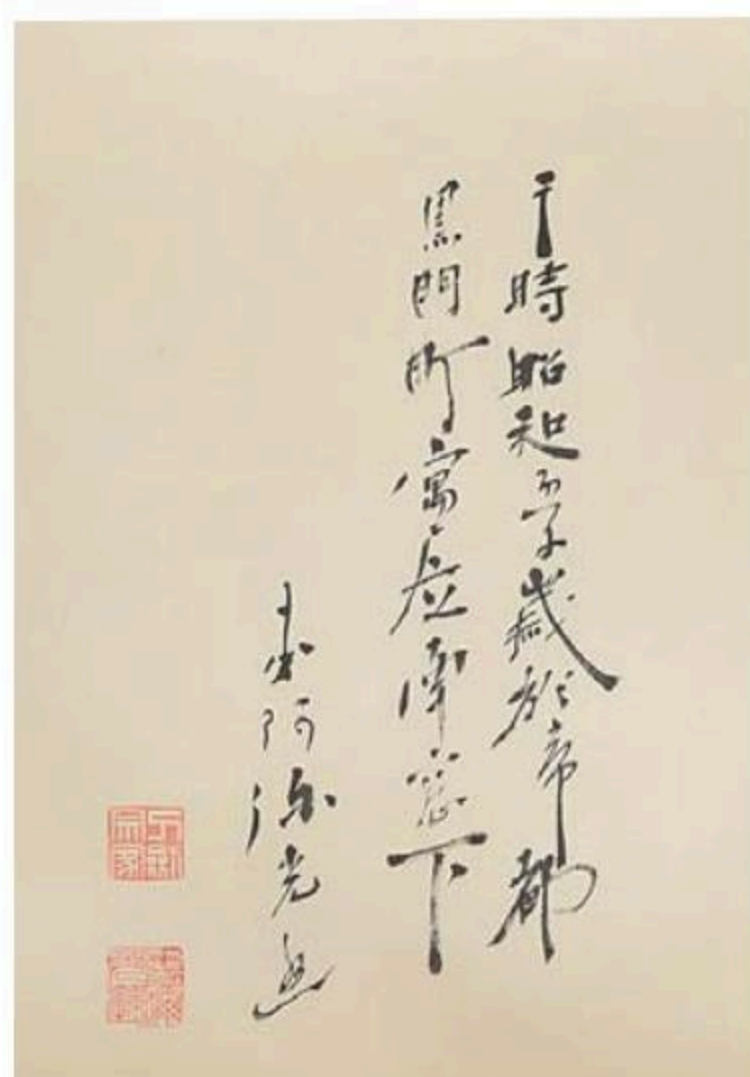 于時昭和五年歳於帝都
黒門町寓居南窓下
阿弥光画